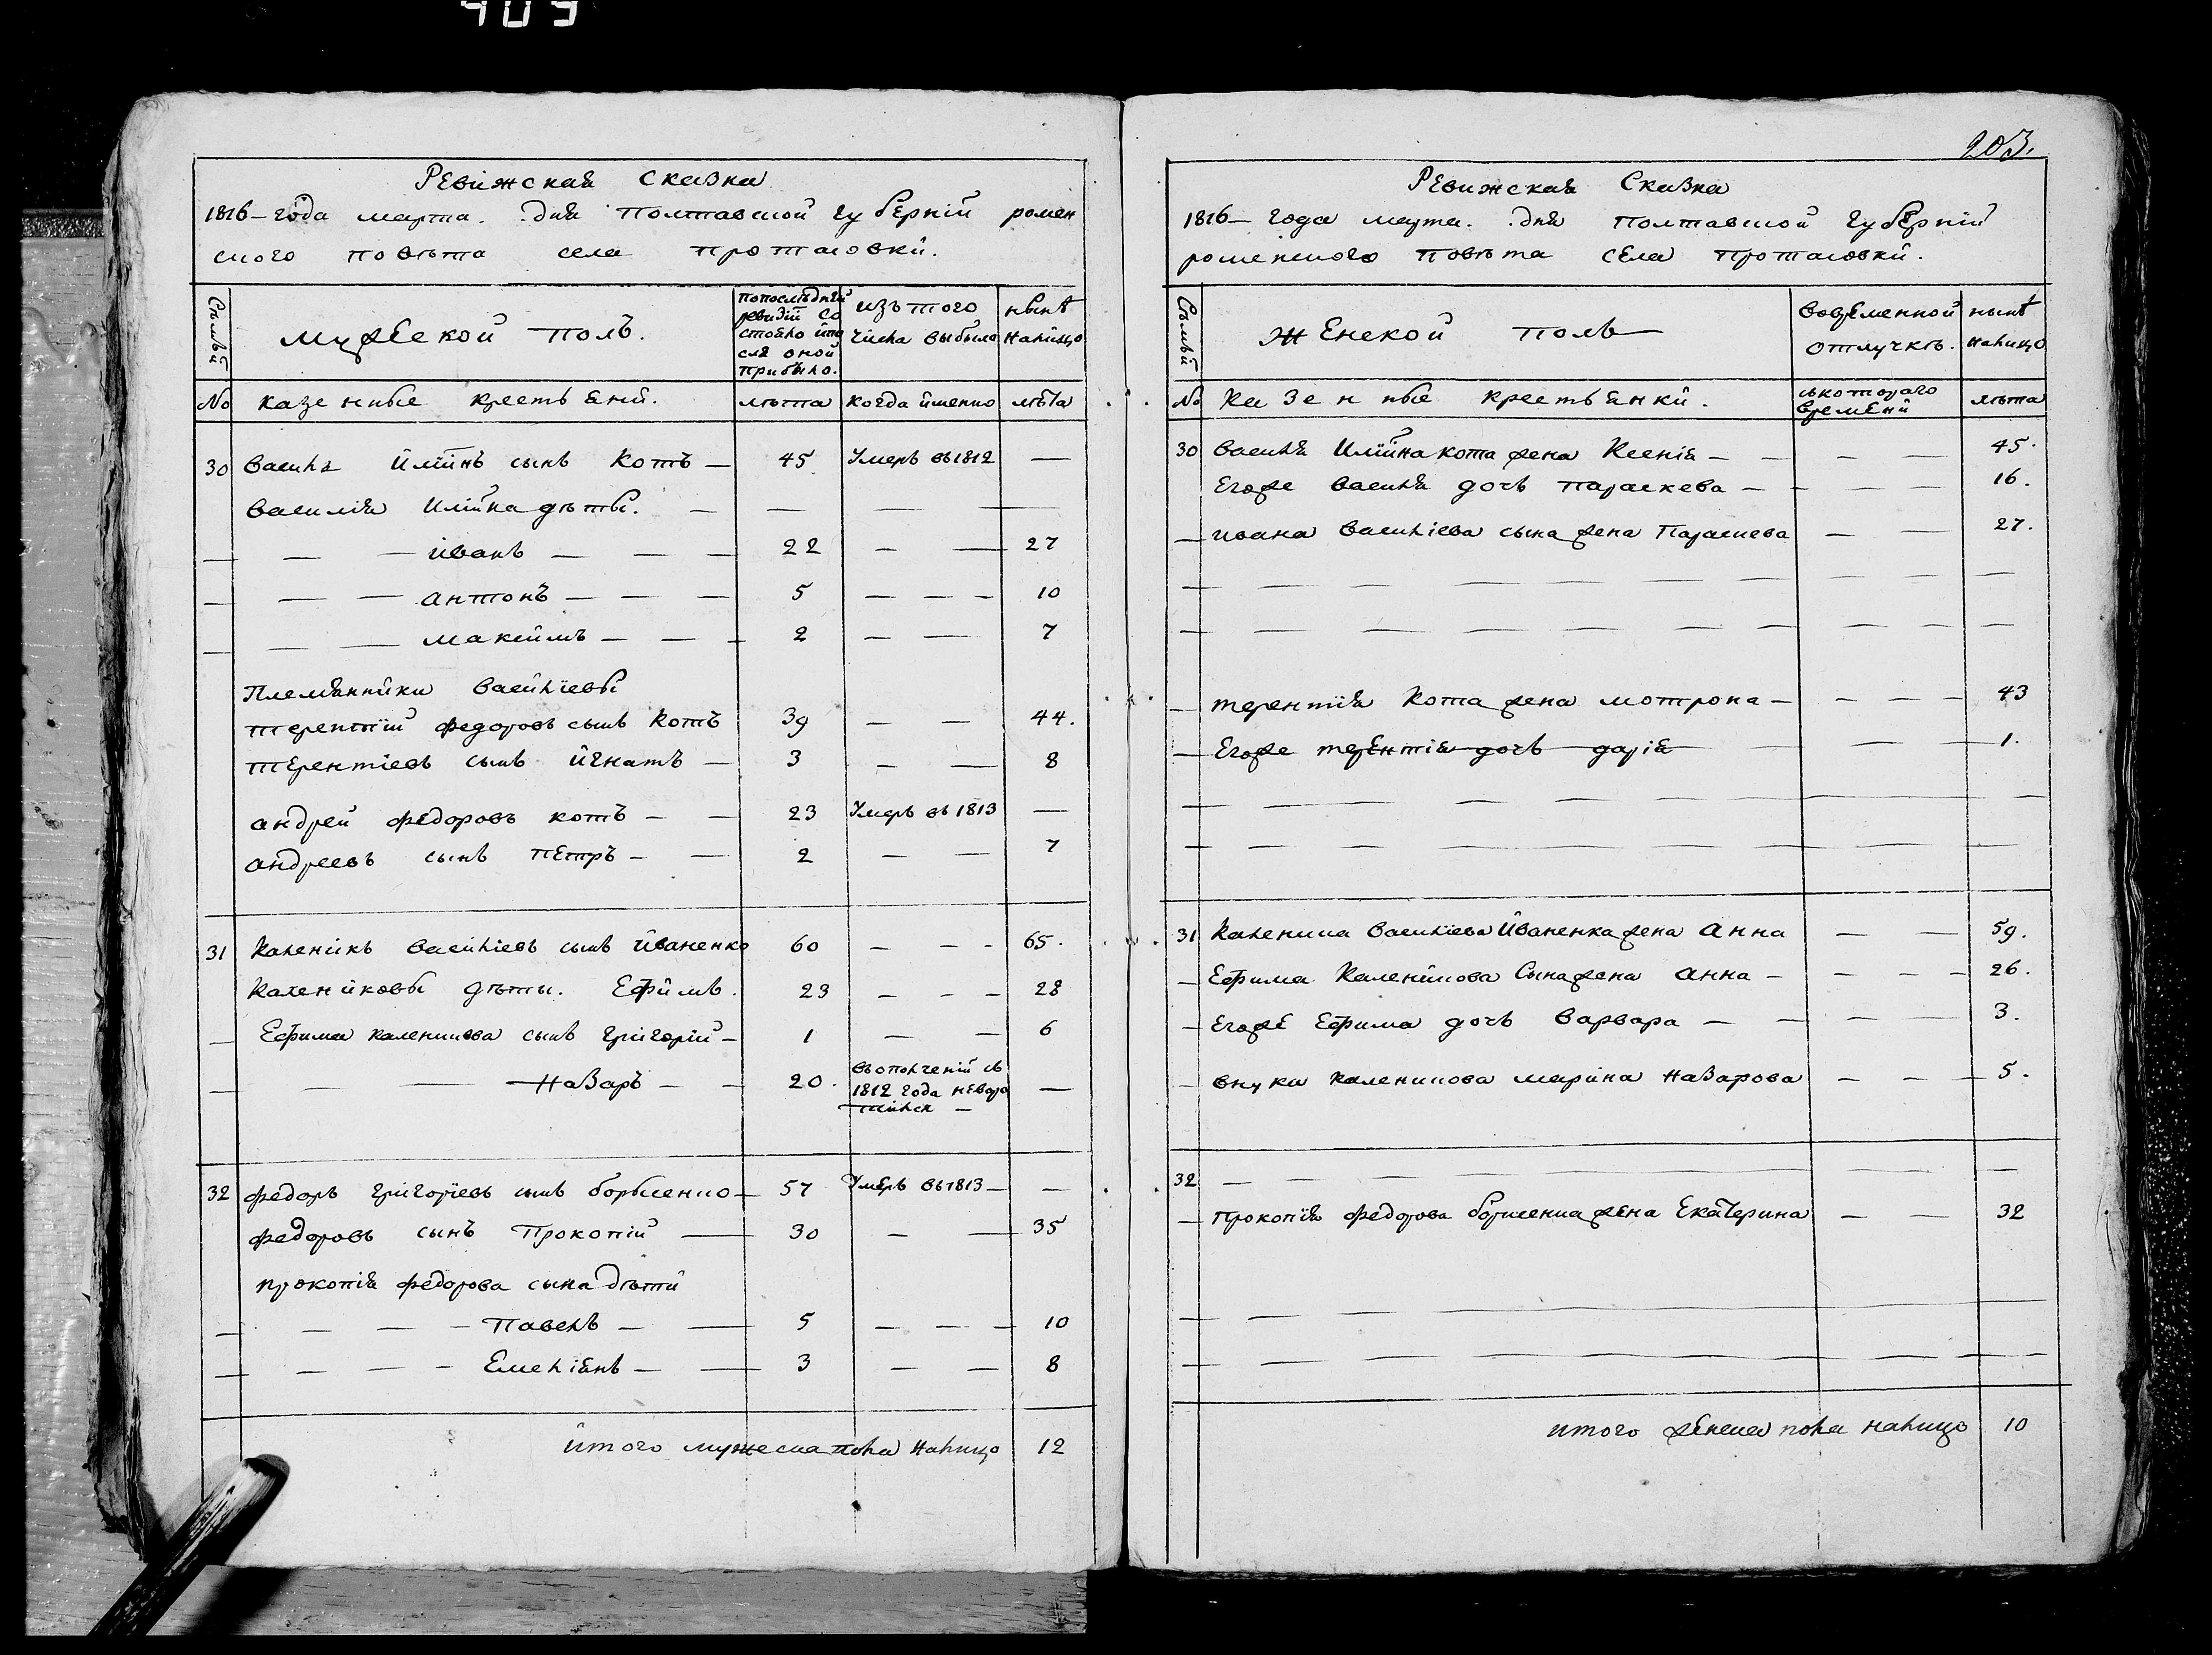 409
Ревижская Сказка
1816- года марта. дня Полтавской губерніи ромен
ского повѣта села протасовки.
Семьи
мужеской полъ.
попослѣдней ревизіи со стояло и по сля оной прибыло.
изъ того числа выбыло
нынѣ налицо
№ казенные крестьяни. лѣта когда именно лѣта
30 Василь Илиинъ сынъ Котъ — 45 Умеръ въ 1812 —
Василія Илиина дѣты. — — — —
— — — иванъ — — — 22 — — 27
— — — антонъ — — — 5 — — — 10
— — — максимъ — — — 2 — — 7
Племянники Василіевы
терентій федоровъ сынъ Котъ 39 — — 44.
терентіевъ сынъ игнатъ — 3 — — 8
андрей федоровъ котъ — — 23 Умеръ въ 1813 —
андреевъ сынъ петръ — — 2 — — 7
31 Каленикъ Василіевъ сынъ Иваненко 60 — — - 65.
Калениковы дѣты. Ефимъ. 23 — — - 28
— Ефима каленикова сынъ григорій — 1 — — 6
— — — Назаръ — — 20. въ ополченіи съ 1812 года неворо тился — —
32 федоръ григоріевъ сынъ борысенко — 57 Умеръ въ 1813 — —
федоровъ сынъ Прокопій — 30 — — 35
прокопія федорова сына дѣти
— — — — Павелъ — — 5 — — — 10
— — — - Емеліянъ — — 3 — — 8
итого мужеска пола налицо 12
203.
Ревижская Сказка
1816- года марта. дня Полтавской Губерніи
роменского повѣта села протасовки.
Семьи
Женской полъ
вовременной отлучкѣ.
нынѣ налицо
№ Казенные крестьянки. скотораго времени лѣта
30 Василя Илиина кота жена Ксенія — — — — 45.
Егоже Василя дочь параскева — - — — 16.
— ивана Василіева сына жена Параскева — — 27.
— терентія Кота жена мотрона — — — — 43
— Егоже терентія дочь дарія — — 1.
31 Каленика Василіева Иваненка жена Анна — — 59.
— Ефима Каленикова Сына жена Анна — — — - 26.
— Егоже Ефима дочь Варвара — — — — 3.
— внука каленикова марина Назарова — — — 5.
32 — — — — — — — —
— Прокопія федорова борисенка жена Екатерина — — 32
итого женска пола налицо 10